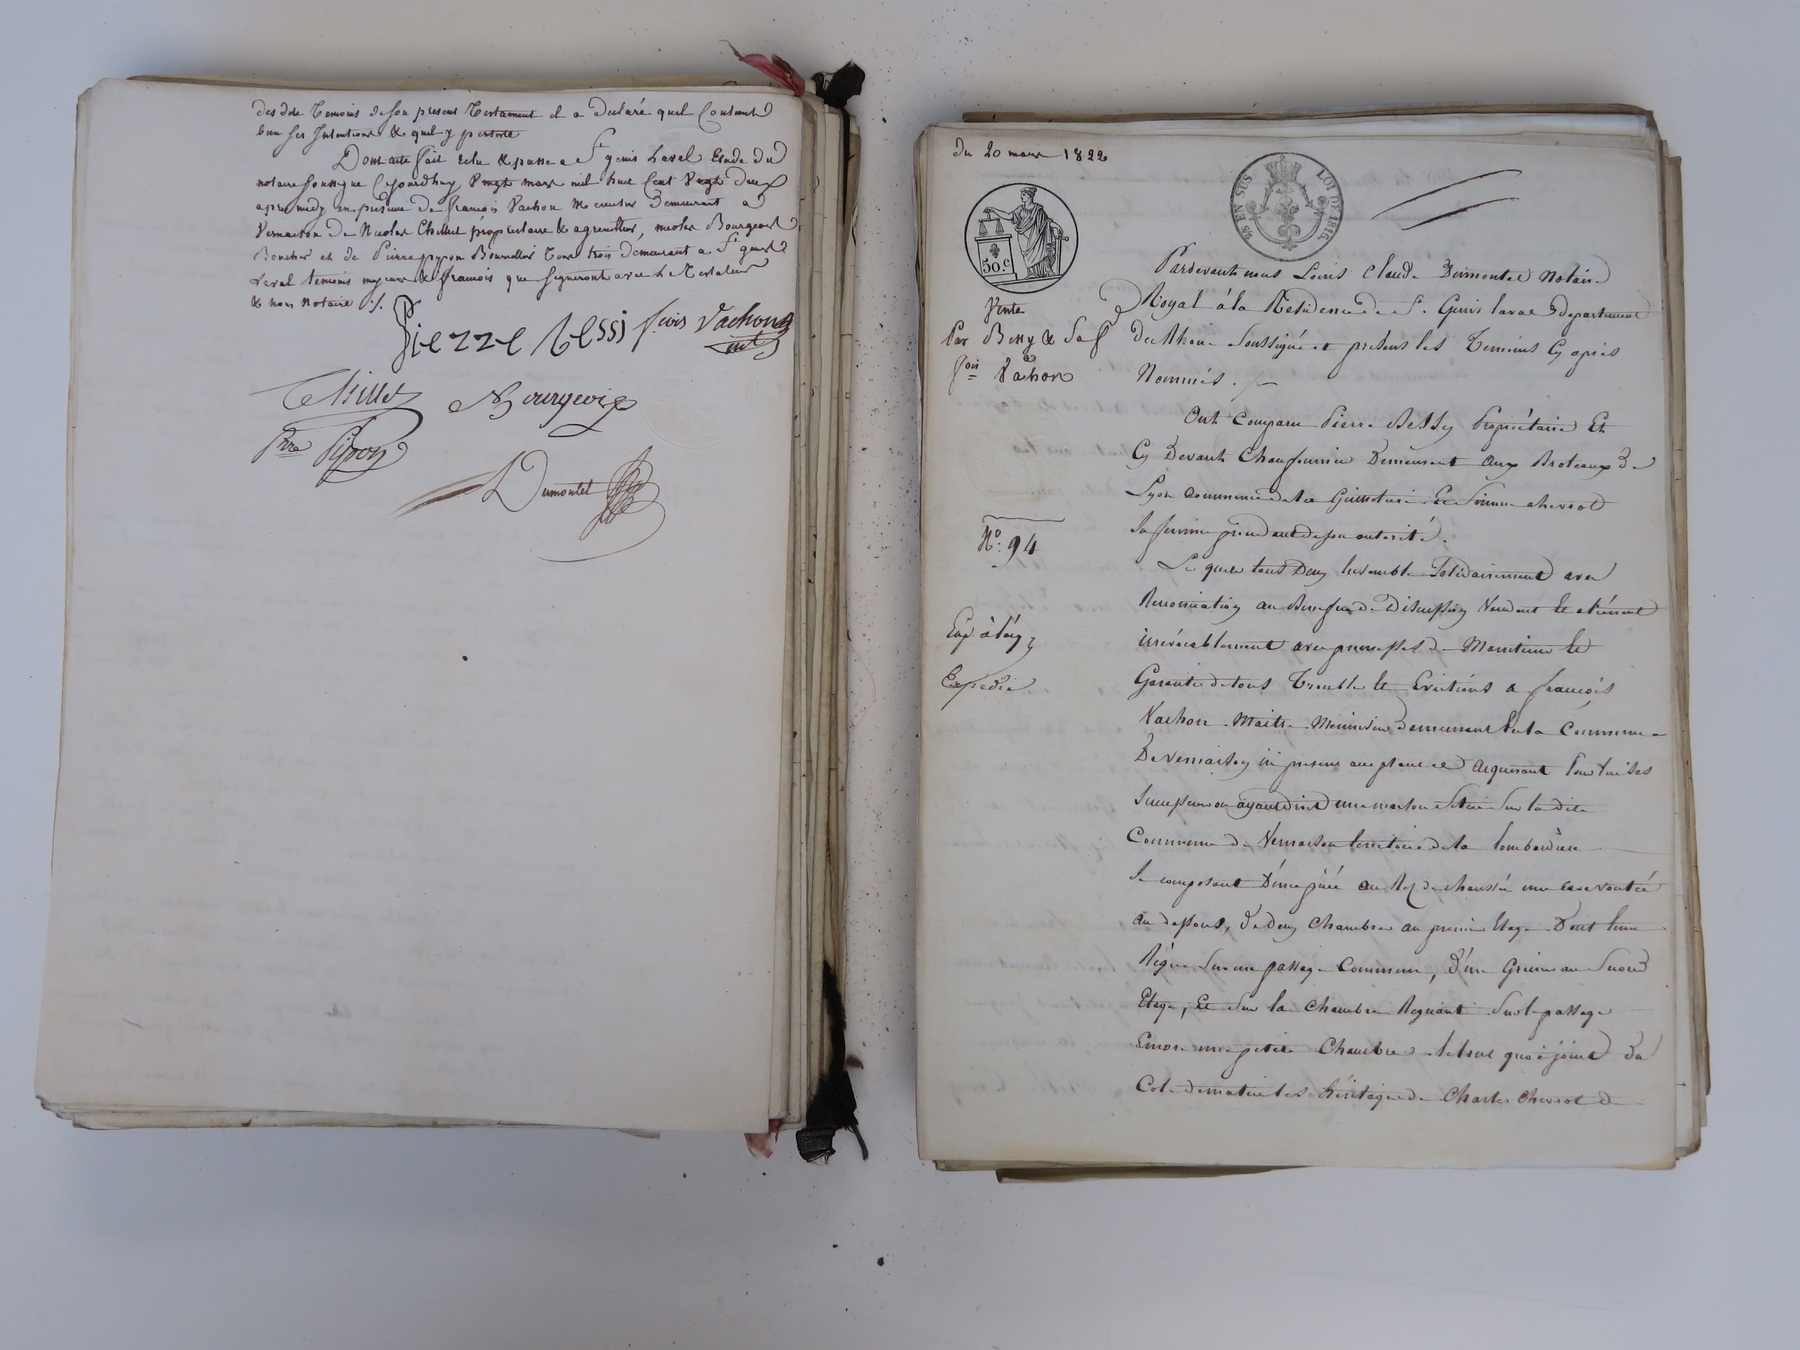 des dits temoins de son present testament il a declaré quil contient
bien ses Intentions & quil y persiste
Dont acte fait Lu & passe a St genis Laval Etude du
notaire soussigne Cejourdhuy Vingt mars mil huit Cent Vingt deux
apres midy en presence de francois Vachon Menuisier Demeurant a
Vernaison de Nicolas Chillet propriétaire & agriculteur, nicolas Bourgeois
Boucher et de Pierre pypon Bourrellier tous trois demeurant a St genis
Laval temoins majeurs & francois qui signeront avec le Testateur
& nous Notaire ./.
Pierre bessi f.cois Vachon
Chillet N Bourgeois
Prre Pipon
Dumontet
du 20 mars 1822
25 EN SUS LOI DE 1816
50.c
Vente
Par Bessy & Sa f
fois Vachon
No. 94
Expedié
Pardevant nous Louis Claude Dumontet Notaire
Royal à la Residence de St. Genis laval département
du Rhone soussigné et présens les Temoins Cy après
Nommés.
Ont Comparu Pierre Bessy Propriétaire Et
Cy Devant Chaufournier Demeurant aux Broteaux de
Lyon commune de la Guillotiere Et Chervot
Sa femme procedant de son autorité.
Lesquels tous Deux Ensemble Solidairement avec
Renonciation au Benefice de Discussion Vendent Et
irrévocablement avec promesses de Maintenue Et
Garantie de tous Trouble Et Evictions a françois
Vachon Maitre Menuisier demeurant En la Commune
De Vernaison ici present acceptant et Acquerant Pour lui ses
Successeurs ou ayant droit une maison Située Sur la dite
Commune de Vernaison territoire de la Lombardiere
Se composant D'une piéce au Rez de chaussée une cave voutée
au dessous, de deux Chambres au premier Etage Dont l'une
Règne Sur un passage Commun, d'un Grenier au Second
Etage, Et Sur la Chambre Regnant Sur le passage
Encore une petite Chambre Le tout joint du
Coté de matin les héritages de Charles Chervot de